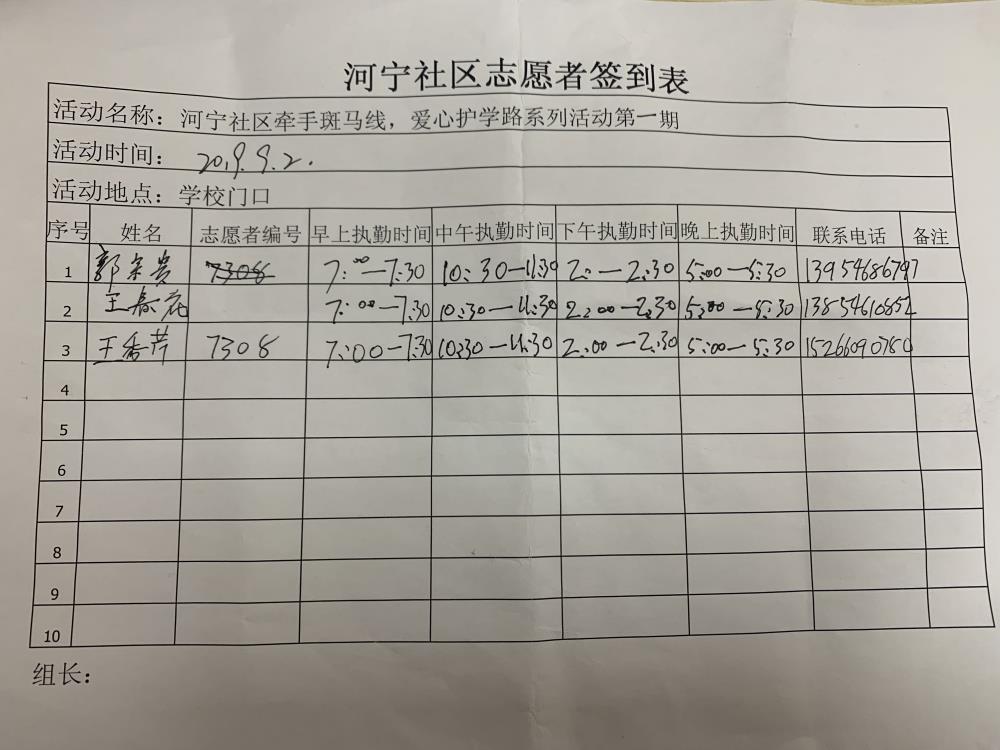 河宁社区志愿者签到表
活动名称：河宁社区牵手斑马线，爱心护学路系列活动第一期
活动时间： 2019.9.2.
活动地点：学校门口
序号 姓名 志愿者编号 早上执勤时间 中午执勤时间 下午执勤时间 晚上执勤时间 联系电话 备注
1 郭 贵 7308 7:00—7:30 10:30—11:30 2:—2:30 5:00—5:30 13954686797
2 王春花 7:00—7:30 10:30—11:30 2:00—2:30 5:00—5:30 13854610852
3 王香芹 7308 7:00—7:30 10:30—11:30 2:00—2:30 5:00—5:30 15266090780
4
5
6
7
8
9
10
组长：